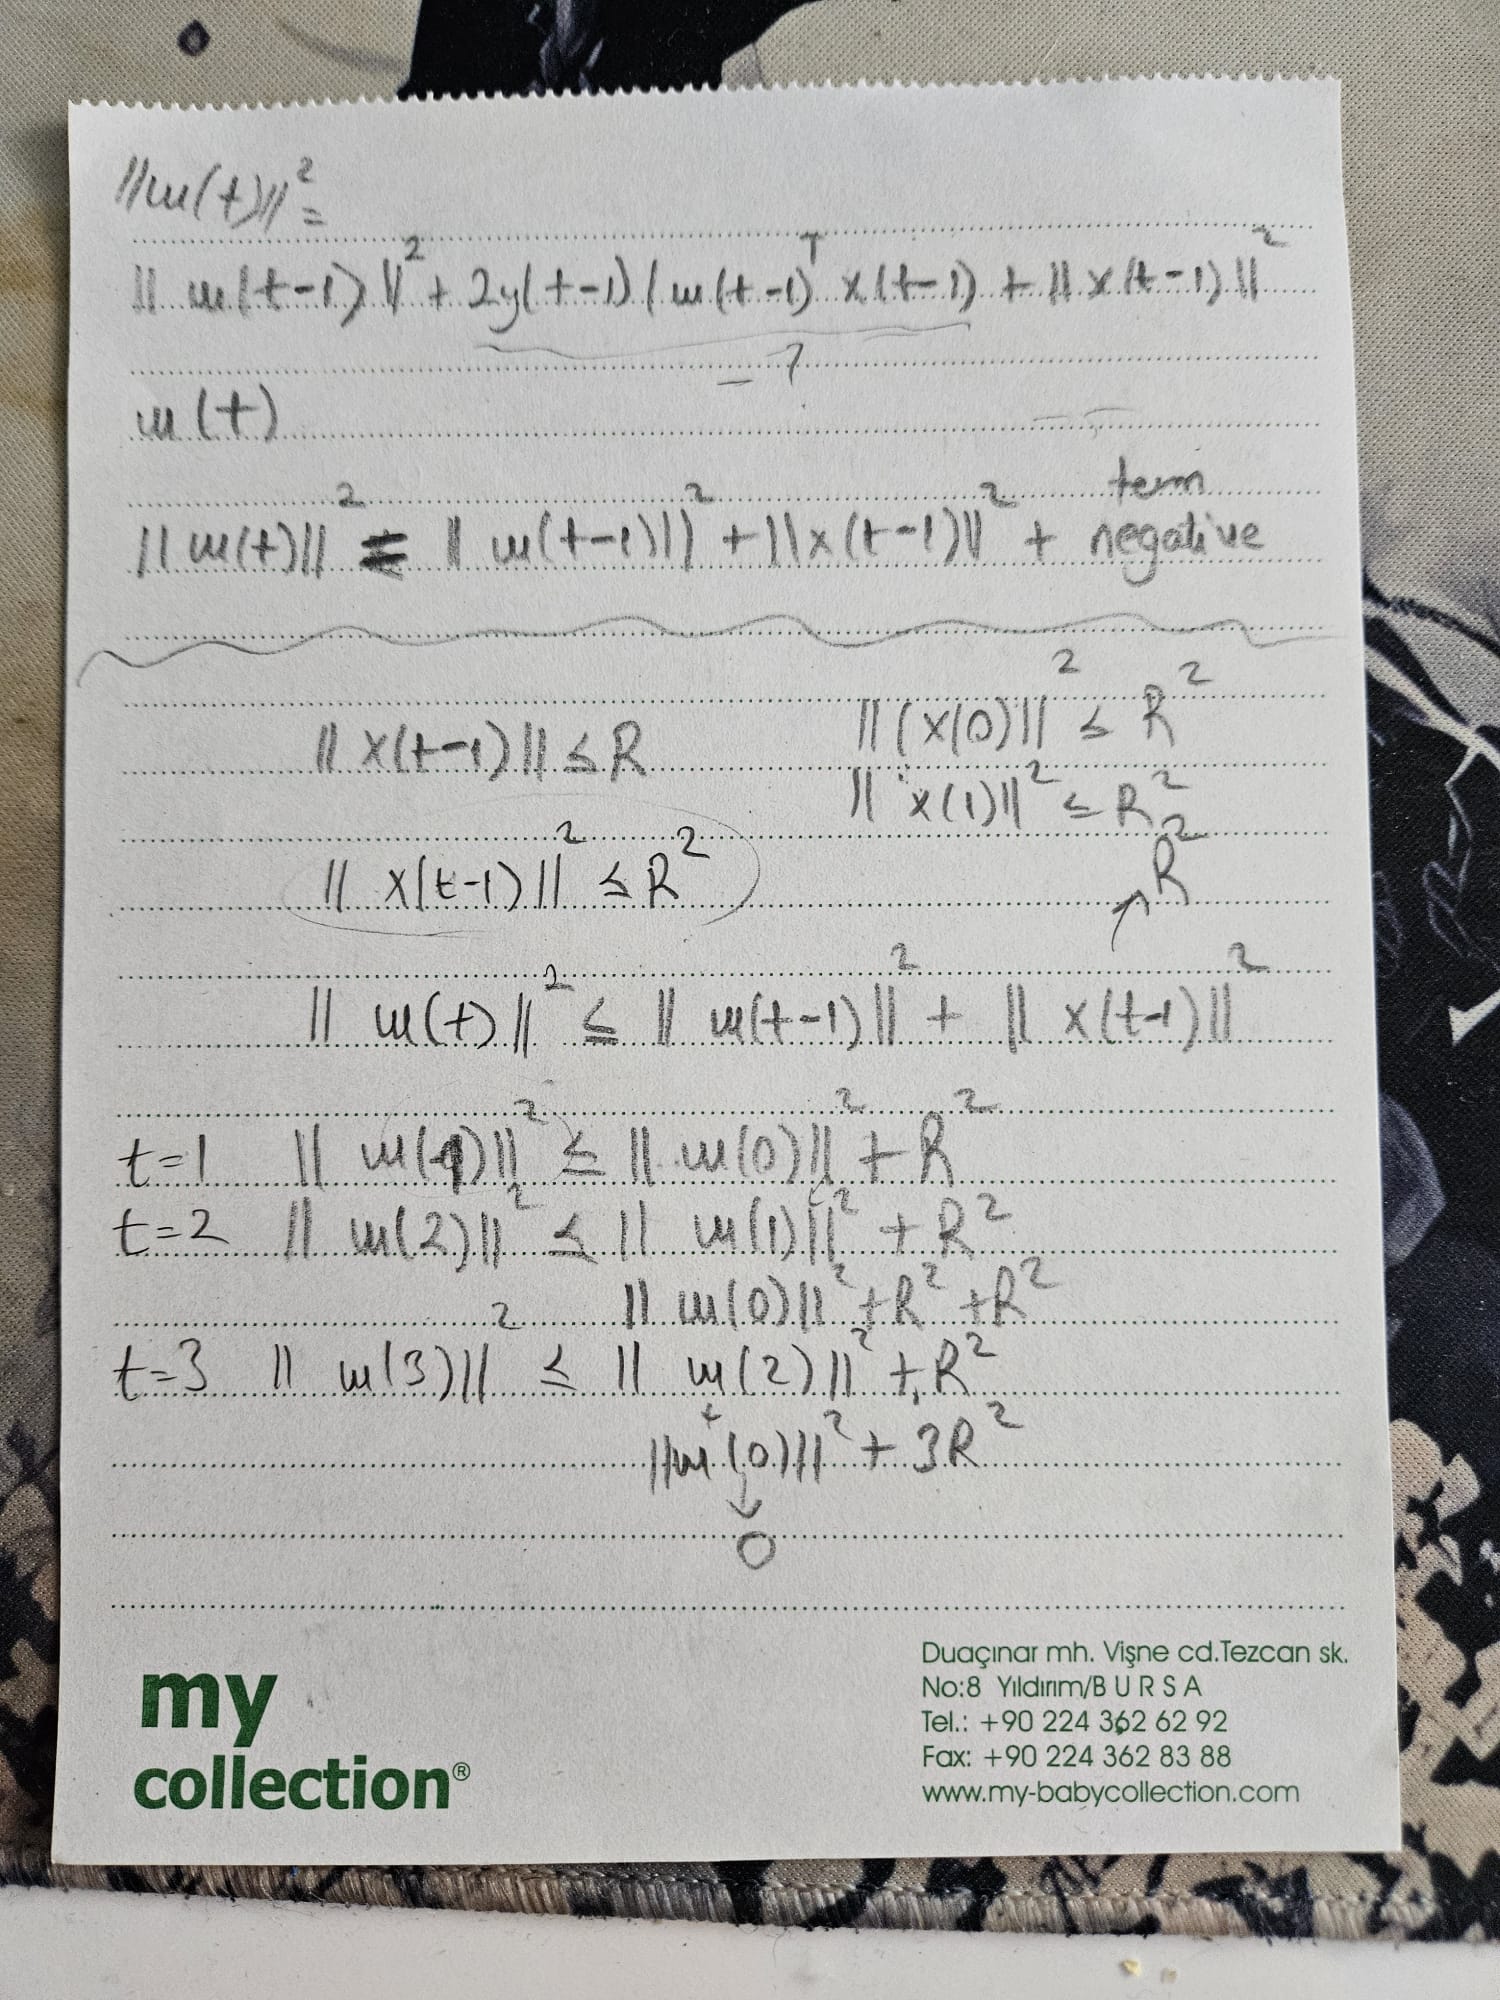 ||w(t)||² =
||w(t-1)||² + 2y(t-1)(w(t-1)ᵀ x(t-1) + ||x(t-1)||²
- ?
w(t)
||w(t)||² = ||w(t-1)||² + ||x(t-1)||² + negative term
||x(t-1)|| ≤ R
||(x(0)||² ≤ R²
||x(1)||² ≤ R²
||x(t-1)||² ≤ R²
↗ R²
||w(t)||² ≤ ||w(t-1)||² + ||x(t-1)||²
t=1 ||w(1)||² ≤ ||w(0)||² + R²
t=2 ||w(2)||² ≤ ||w(1)||² + R²
||w(0)||² + R² + R²
t=3 ||w(3)||² ≤ ||w(2)||² + R²
||w(0)||² + 3R²
↓
0
my
collection®
Duaçınar mh. Vişne cd.Tezcan sk.
No:8 Yıldırım/B U R S A
Tel.: +90 224 362 62 92
Fax: +90 224 362 83 88
www.my-babycollection.com